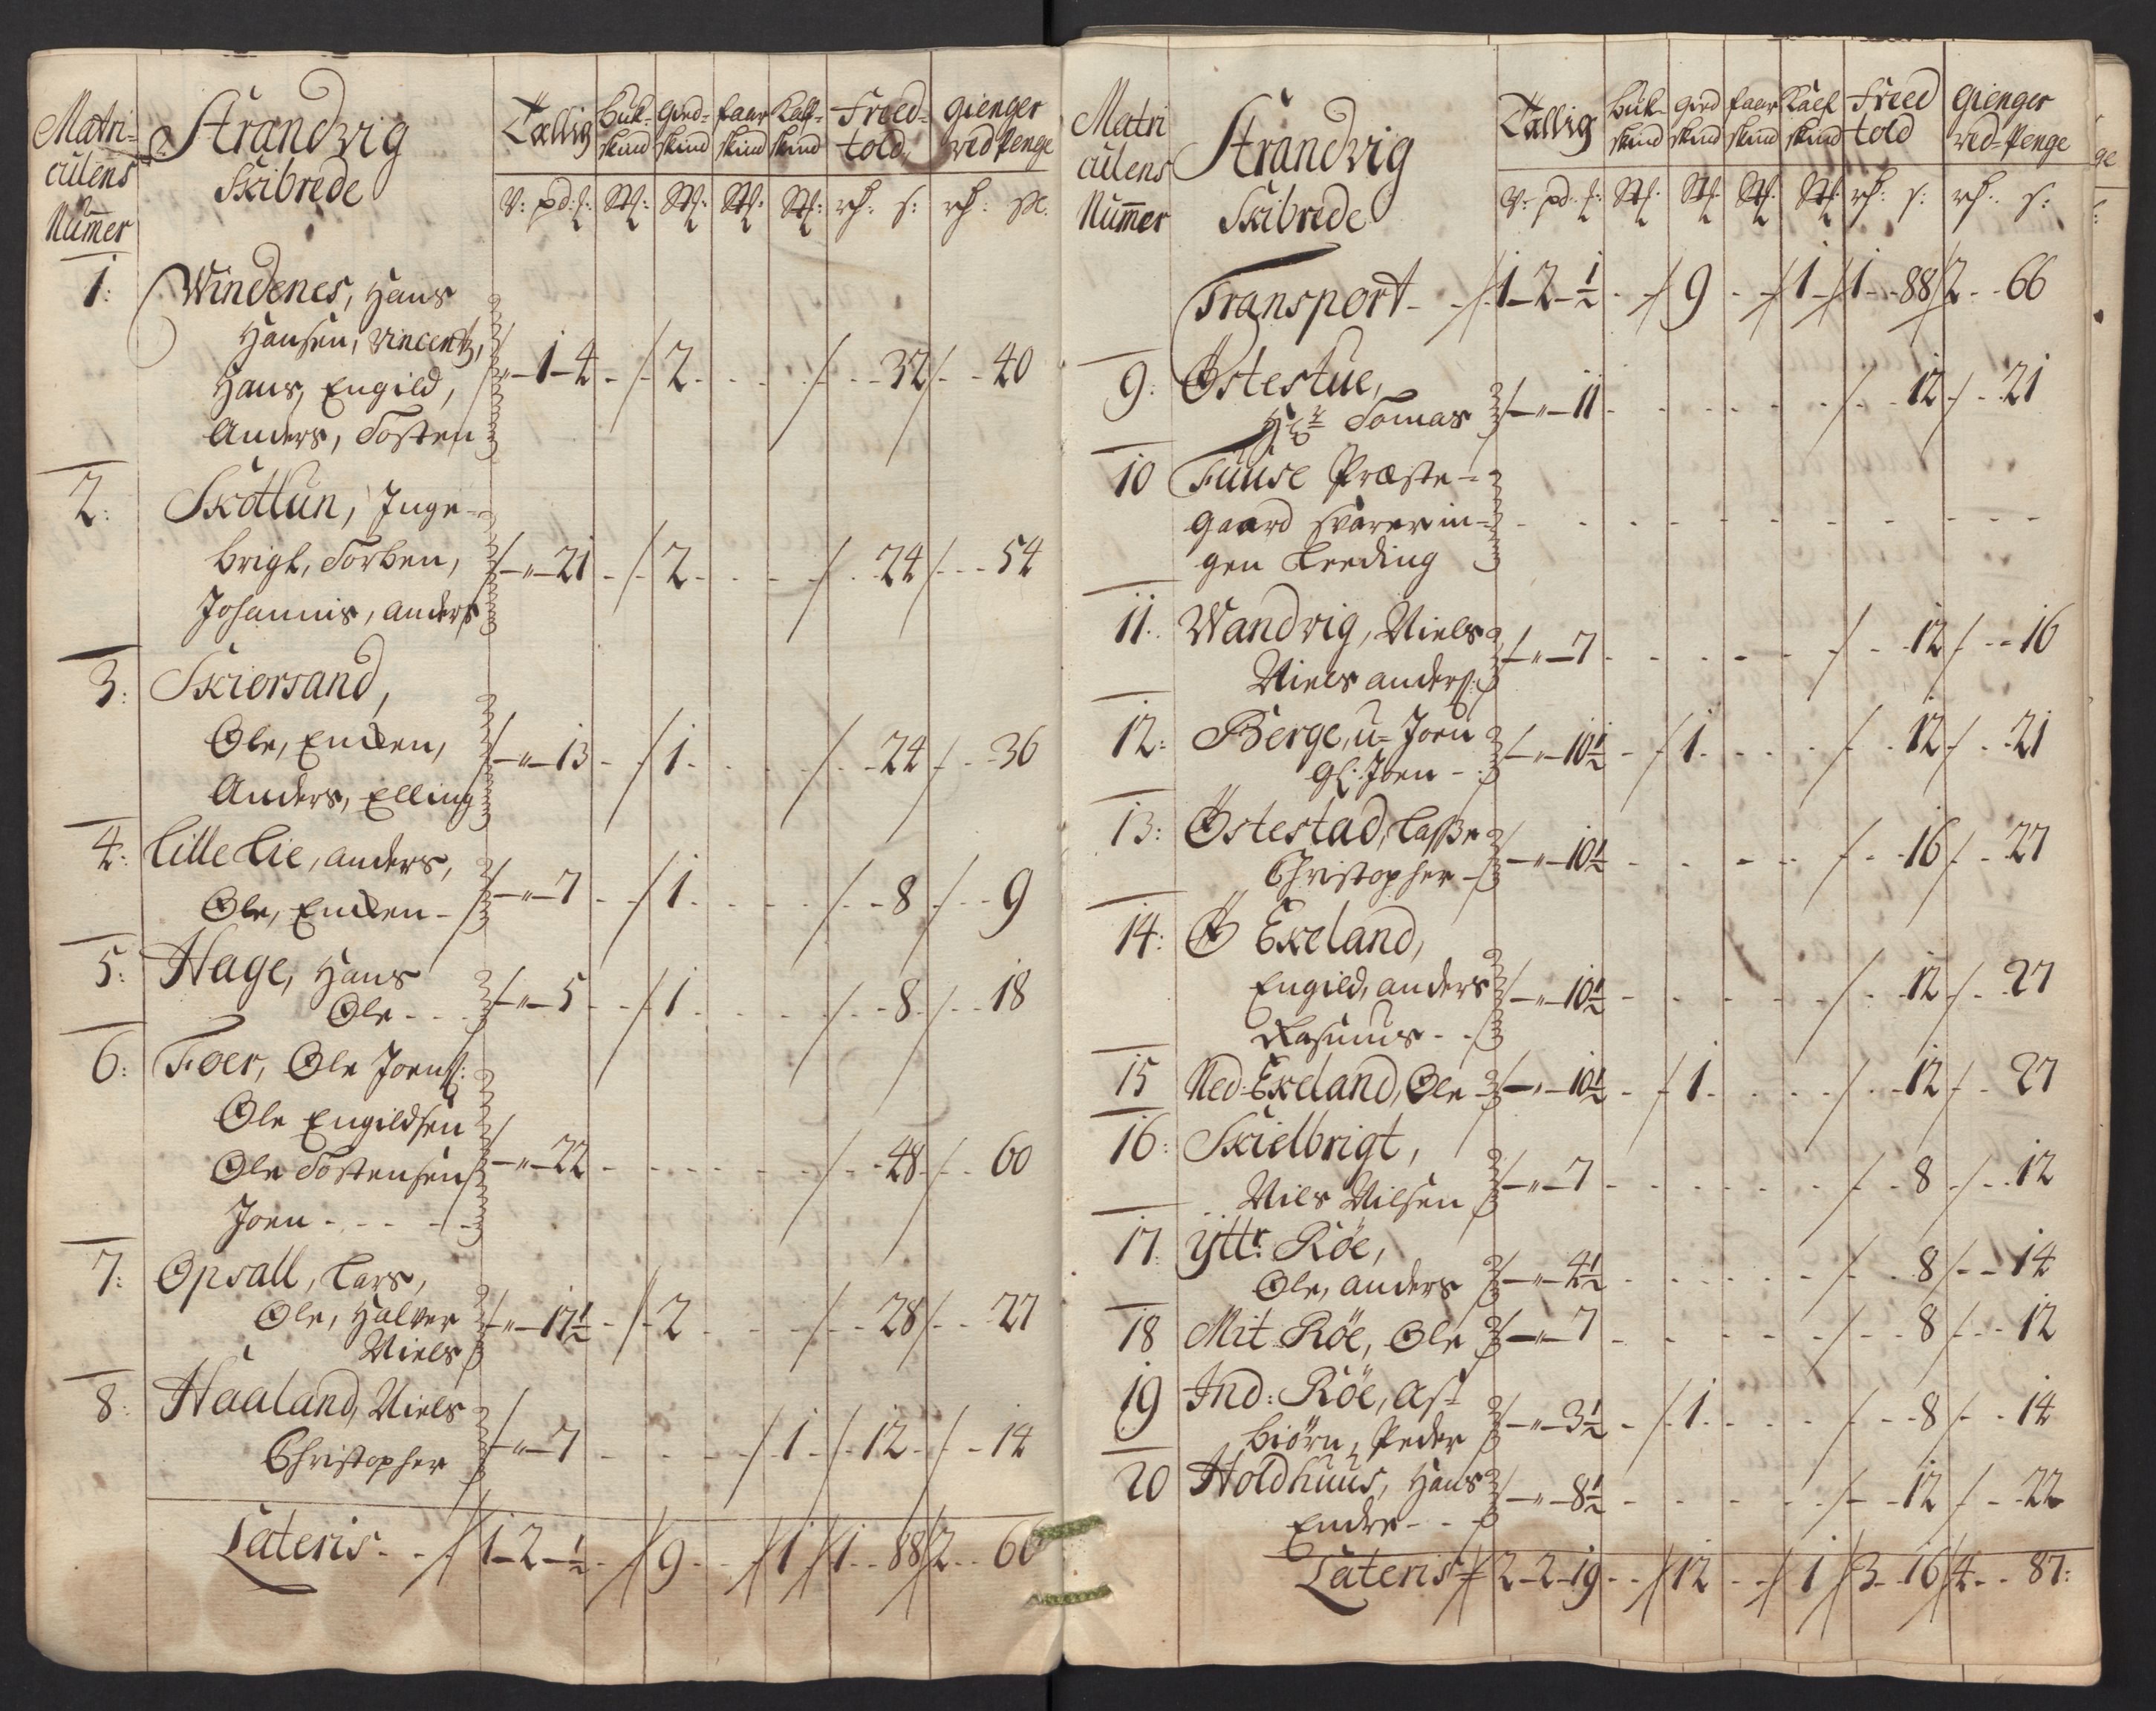 Matri-
culens
Nummer
Strandvig
Skibrede
Tællig Buk-skind Gied-skind faar skind Kalf-skind Freed-told gienger ved Penge
V: pd: f: St: St: St: St: rh: s: rh: s:
1: Windenes, Hans
Hansen, Vincentz,
Hans, Engild, - 1 - 4 - 2 - 32 - 40
Anders, Tosten
2: Skotlun, Inge-
brigt, Torben, - " - 21 - 2 - 24 - 54
Johannis, anders
3: Skiorsand,
Ole, - " - 13 - 1 - 24 - 36
Anders, Elling
4: Lille Lie, anders,
Ole, - " - 7 - 1 - 8 - 9
5: Hage, Hans
Ole - - - " - 5 - 1 - 8 - 18
6: Foer, Ole Joens:
Ole Engildsen
Ole Tostensen - " - 22 - 48 - 60
Joen - - -
7: Opsall, Lars,
Ole, Halver - " - 17 1/2 - 2 - 28 - 27
Niels
8: Haaland, Niels
Christopher - " - 7 - 1 - 12 - 14
Lateris - 1 - 2 - 1/2 - 9 - 1 1 - 88 2 - 66
Matri
culens
Nummer
Strandvig
Skibrede
Tællig Buk-skind gied skind faar skind Kalf skind Freed told gienger ved-Penge
V: pd: f: St: St: St: St: rh: s: rh: s:
Transport - 1 - 2 - 1/2 - 9 - 1 1 - 88 2 - 66
9: Östestue,
Hr Tomas - " - 11 - 12 - 21
10 Fuuse Præste-
gaard svarer in-
gen Leeding
11: Wandvig, Niels
Niels anders: - " - 7 - 12 - 16
12: Berge, u= Joen
gl: Joen - " - 10 1/2 - 1 - 12 - 21
13: Östestad, Lasse
Christopher - " - 10 1/2 - 16 - 27
14: Ö Exeland,
Engild, anders - " - 10 1/2 - 12 - 27
Rasmus - -
15 Ned-Exeland, Ole - " - 10 1/2 - 1 - 12 - 27
16: Skielbrigt,
Nils Nilsen - " - 7 - 8 - 12
17: Yttr: Röe,
Ole, anders - " - 4 1/2 - 8 - 14
18 Mit Röe, Ole - " - 7 - 8 - 12
19 Ind: Röe, As-
biörn, Peder - " - 3 1/2 - 1 - 8 - 14
20 Holdhuus, Hans
Endre - - " - 8 1/2 - 12 - 22
Lateris 2 - 2 - 19 - 12 - 1 3 - 16 4 - 87: